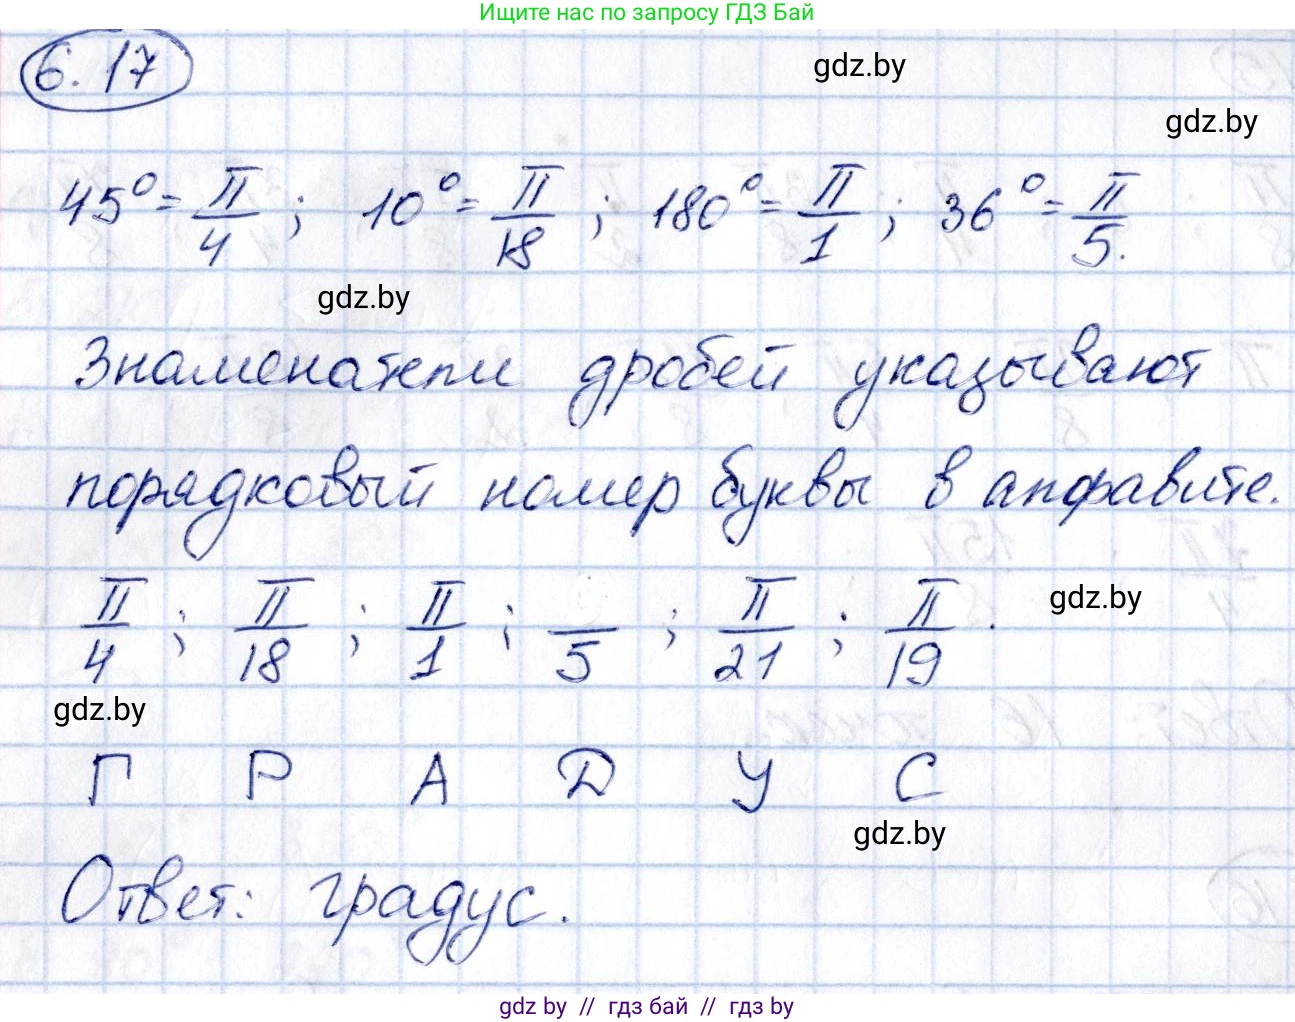 Ищите нас по запросу ГДЗ Бай
6.17
gdz.by
gdz.by
45° = π/4 ; 10° = π/18 ; 180° = π/1 ; 36° = π/5.
gdz.by
Знаменатели дробей указывают
порядковый номер буквы в алфавите.
π/4 ; π/18 ; π/1 ; /5 ; π/21 ; π/19 .
gdz.by
gdz.by
Г Р А Д У С
gdz.by
Ответ: градус.
gdz by // гдз бай // гдз by